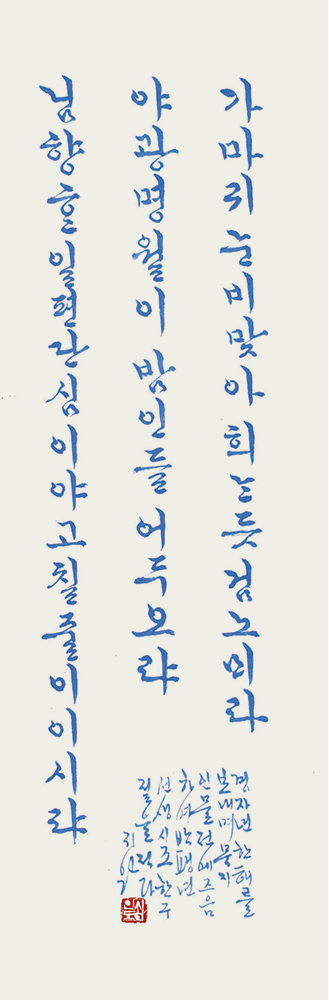 가마귀눈비맞아희는듯검노매라
야광명월이밤인들어두오랴
님향한일편단심이야고칠줄이이시랴
경자년한해를
보내며묵지
인물전에즈음
하여박팽년
선생시조한구
절을적다